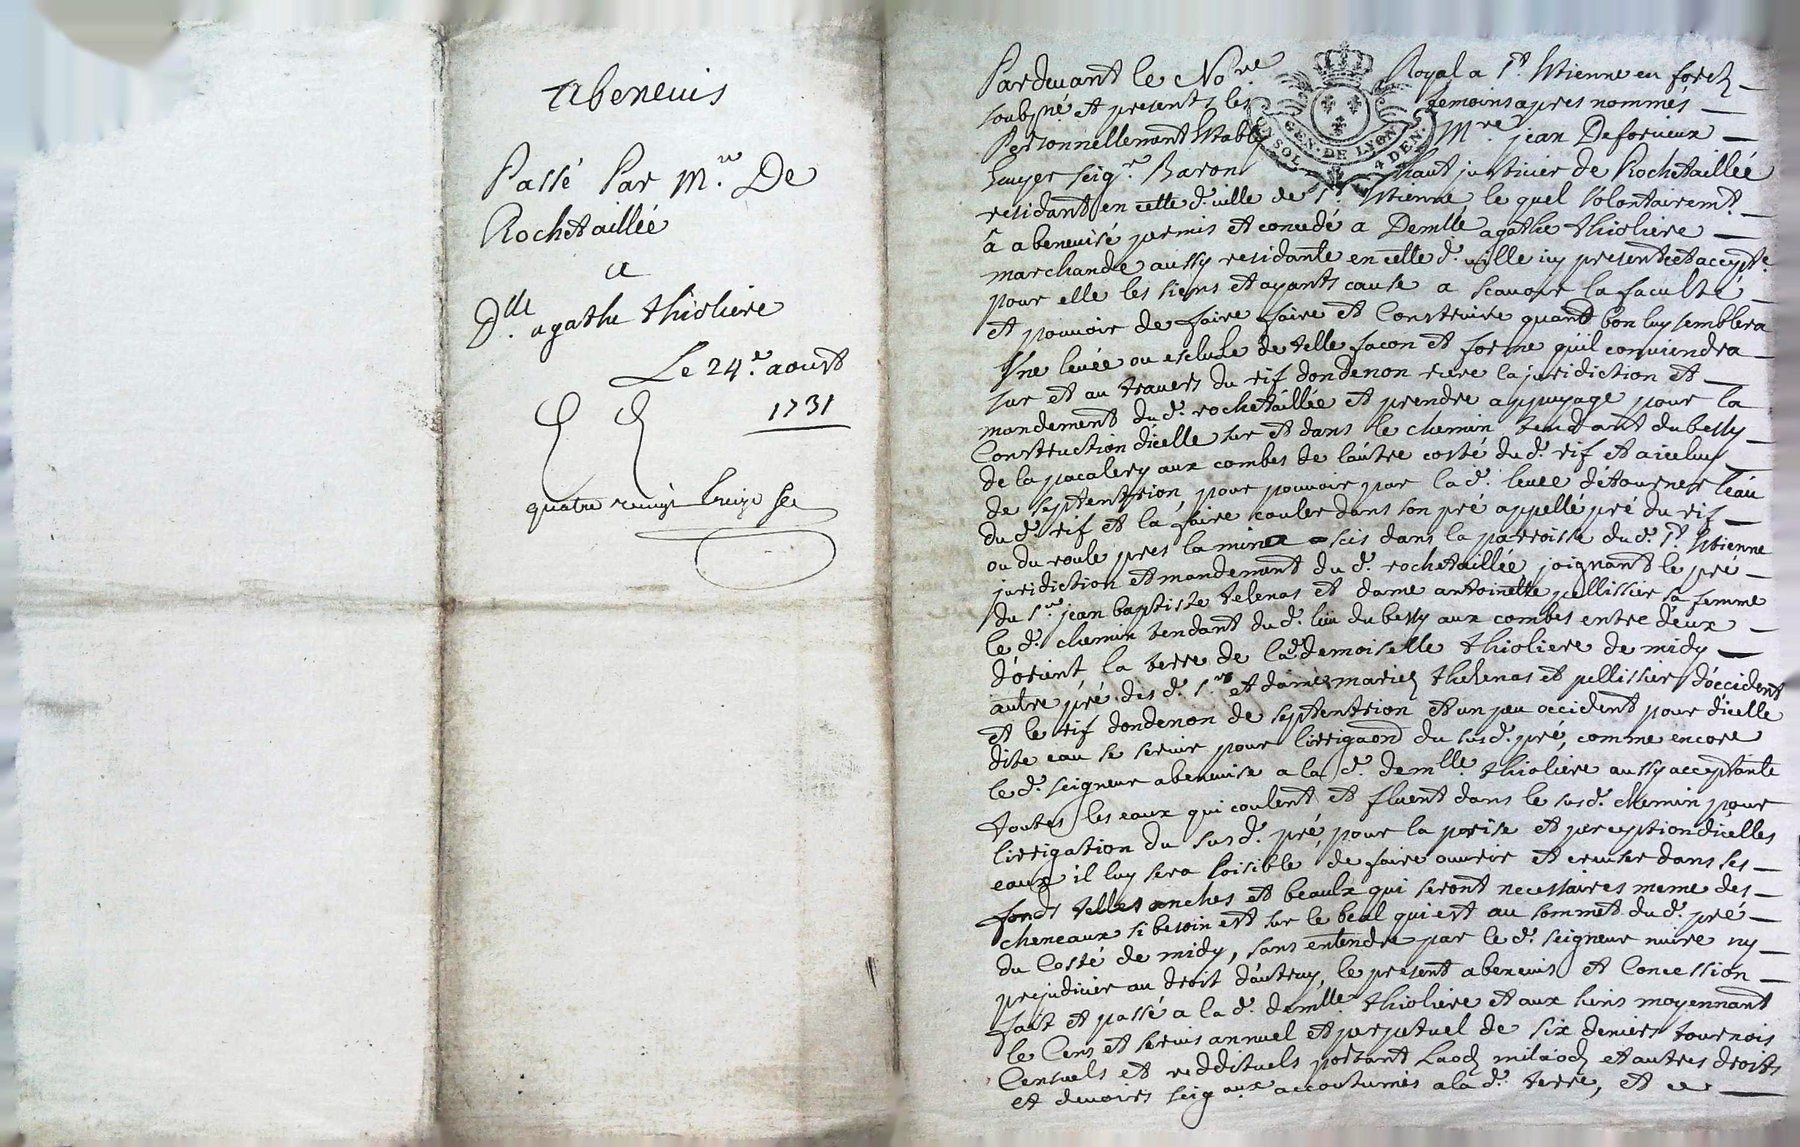 Abenevis
Passé Par Mre. De
Rochetaillée
a
Dlle. agathe thioliere
Le 24e. aoust
1731
quatre vingt treize
Pardevant le Nore Royal a St. Etienne en forest
soubsné et presents les temoins apres nommés
Personnellement Estably Mre. jean De forieux
Escuyer seigr. Baron haut justicier de Rochetaillée
residant en cette d. ville de St. Etienne le quel volontairemt.
â abenevisé permis et concedé a Demlle agathe thioliere
marchande aussy residante en cette d. ville icy presente et accepte.
pour elle les siens et ayants cause a scavoir la faculté
et pouvoir de faire faire et Construire quand bon luy semblera
Une levée ou escluse de telle façon et forme quil conviendra
sur et au travers du rif dondenon riere la juridiction et
mandement du d. rochetaillée et prendre appuyage pour la
Construction dicelle sur et dans le chemin tendant du bessy
de la pacalery aux combes de lautre costé du d. rif et aiceluy
de septentrion, pour pouvoir par la d. levée détourner l'eau
du d. rif et la faire couler dans son pré appellé pré du rif
ou du roule pres la mine scis dans la parroisse du d. St. Etienne
juridiction et mandement du d. rochetaillée joignant le pré
du Sr. jean baptiste telenas et dame antoinette pellissier sa femme
le d. chemin tendant du d. lieu du bessy aux combes entre deux
d'orient, la terre de la d. demoiselle thioliere de midy
autre pré des d. Srs et dame mariés thelenas et pellissier d'occident
et le rif dondenon de septentrion et un peu occident pour dicelle
dite eau se servir pour lirrigaon du susd. pré, comme encore
le d. seigneur abenevise a la d. demlle. thioliere aussy acceptante
toutes les eaux qui coulent et fluent dans le susd. chemin pour
lirrigation du susd. pré, pour la prise et perception dicelles
eaux il luy sera loisible de faire ouvrir et creuser dans ses
fonds telles anches et beaulx qui seront necessaires meme des
cheneaux si besoin est sur le beal qui est au sommet du d. pré
du Costé de midy, sans entendre par le d. seigneur nuire ny
prejudicier au droit dautruy, le present abenevis et Concession
fait et passé a la d. demlle thioliere et aux siens moyennant
le Cens et servis annuel et perpetuel de six deniers tournois
Censuels et reddituels portant Laods milaods et autres droits
et devoirs seigaux accoutumés a la d. terre, et ce
GEN. DE LYON
SOL 4 DEN.